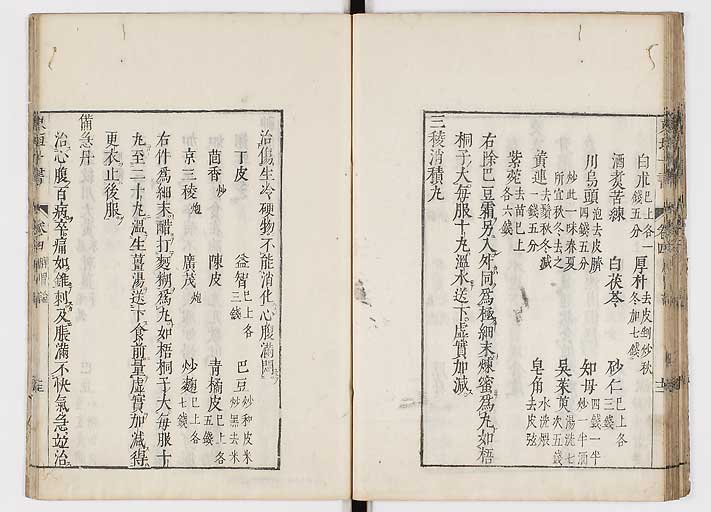 白朮 已上各一錢五分 厚朴 去皮剉炒秋冬加七錢
酒煮苦練 白茯苓 砂仁 已上各三錢
川烏頭 泡去皮臍四錢五分 知母 四錢一半炒一半酒
炒此一味春夏所宜秋冬去之 吳茱萸 湯洗七次五錢
黃連 去鬚秋冬減一錢五分 皁角 水洗煨去皮弦
紫菀 去苗已上各六錢
右除巴豆霜另入外同爲極細末煉蜜爲丸如梧
桐子大每服十丸溫水送下虛實加減
三稜消積丸
治傷生冷硬物不能消化心腹滿悶
丁皮 益智 已上各三錢 巴豆 炒和皮米炒黑去米
茴香 炒 陳皮 青橘皮 已上各五錢
京三稜 炮 廣茂 炮 炒麴 已上各七錢
右件爲細末醋打麪糊爲丸如梧桐子大每服十
丸至二十丸溫生薑湯送下食前量虛實加減得
更衣止後服
備急丹
治心腹百病卒痛如錐刺及脹滿不快氣急竝治